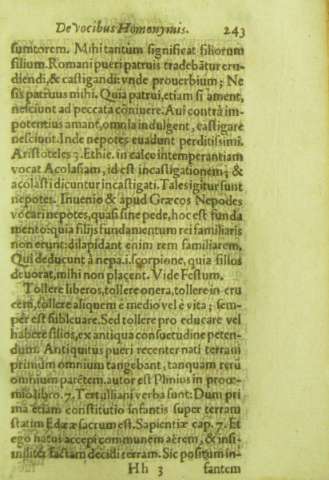 De vocibus Homonymis. 243
sumtorem. Mihi tantùm significat filiorum
filium. Romani pueri patruis tradebãtur eru-
diendi, & castigandi: vnde prouerbium; Ne
sis patruus mihi. Quia patrui, etiam si ament,
nesciunt ad peccata coniuere. Aui contrà im-
potentius amant, omnia indulgent, castigare
nesciunt. Inde nepotes euadunt perditissimi.
Aristoteles 3. Ethic. in calce intemperantiam
vocat Acolasiam, id est incastigationem: &
acolasti dicuntur incastigati. Tales igitur sunt
nepotes. Inuenio & apud Græcos Nepodes
vocari nepotes, quasi sine pede, hoc est funda
mento: quia filijs fundamentum rei familiaris
non erunt: dilapidant enim rem familiarem.
Qui deducunt à nepa .i. scorpione, quia filios
deuorat, mihi non placent. Vide Festum.
Tollere liberos, tollere onera, tollere in cru
cem, tollere aliquem è medio vel è vita; sem-
per est subleuare. Sed tollere pro educare vel
habere filios, ex antiqua consuetudine peten-
dum. Antiquitus pueri recenter nati terram
primùm omnium tangebant, tanquam rerũ
omnium parẽtem. autor est Plinius in proœ-
mio libro. 7. Tertulliani verba sunt: Dum pri
ma etiam constitutio infantis super terram
statim Edææ sacrum est. Sapientiæ cap. 7. Et
ego natus accepi communem aërem, & insi-
militer factam decidi terram. Sic positum in-
Hh 3 fantem